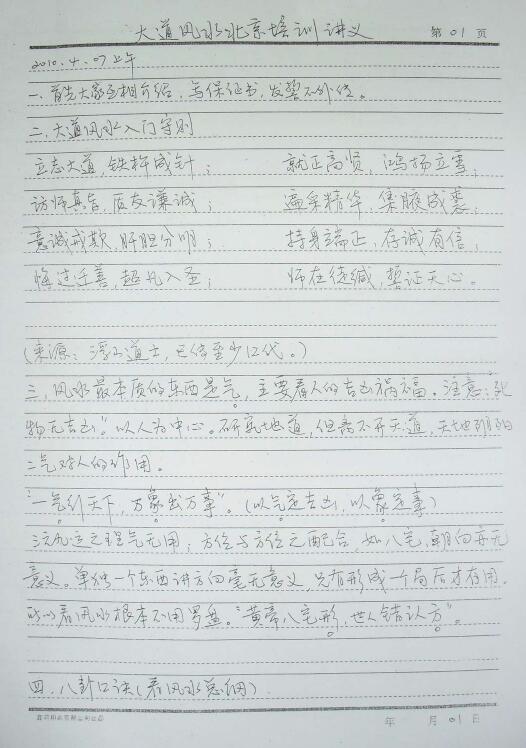 大道风水北京培训讲义 第01页
2010.4.07上午
一、首先大家互相介绍，写保证书，发誓不外传。
二、大道风水入门守则
立志大道，铁杵成针； 就正高贤，鸿扬立雪；
访师真旨，匠友谦诚； 遍采精华，集腋成裘；
意诚戒欺，肝胆分明； 持身端正，存诚有信，
悔过迁善，超凡入圣； 师在徒缄，誓证天心。
(来源：浮山道士，已传至少12代。)
三、风水最本质的东西是气，主要看人的吉凶祸福。注意："死
物无吉凶"。以人为中心。研究地道，但离不开天道，天地阴阳
二气对人的作用。
"一气纠天下，万象出万事"。(以气定吉凶，以象定事)
三元九运之理气无用；方位与方位之配合，如八宅，朝向并无
意义。单独一个东西讲方向毫无意义，只有形成一个局后才有用。
所以看风水根本不用罗盘。"黄帝八宅形，世人错认方"。
四、八卦口诀(看风水总纲)
年 月01日